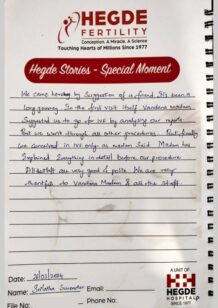 HEGDE
FERTILITY
Conception. A Miracle. A Science
Touching Hearts of Millions Since 1977
Hegde Stories - Special Moment
We came here by Suggestion of a friend. It's been a
long journey. In the first visit itself Vandana madam
Suggested us to go for IVF by analysing our reports
But we went through all other procedures. But finally
we conceived in IVF only as madam said. Madam has
Explained Everything in detail before our procedure.
All the staff are very good & polite. We are very
thankful to Vandana Madam & all the staff.
Date:
Name:
Email:
File No:
Phone No:
A UNIT OF
HEGDE
HOSPITALS
SINCE 1977